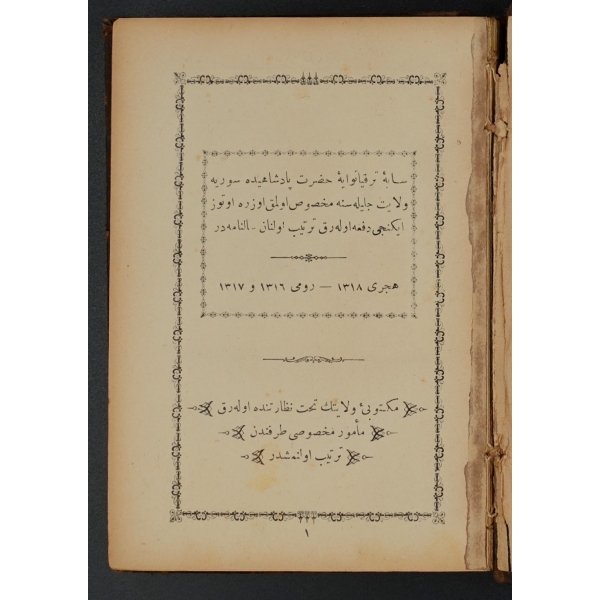 سایهٔ ترقیانوایهٔ حضرت پادشاهیده سوریه
ولایت جلیله سنه مخصوص اولمق اوزره اوتوز
ایکنجی دفعه اوله رق ترتیب اولنان سالنامه در
هجری ١٣١٨ — رومی ١٣١٦ و ١٣١٧
مکتوبیٔ ولایتك تحت نظارتنده اوله رق
مأمور مخصوصی طرفندن
ترتیب اولنمشدر
١